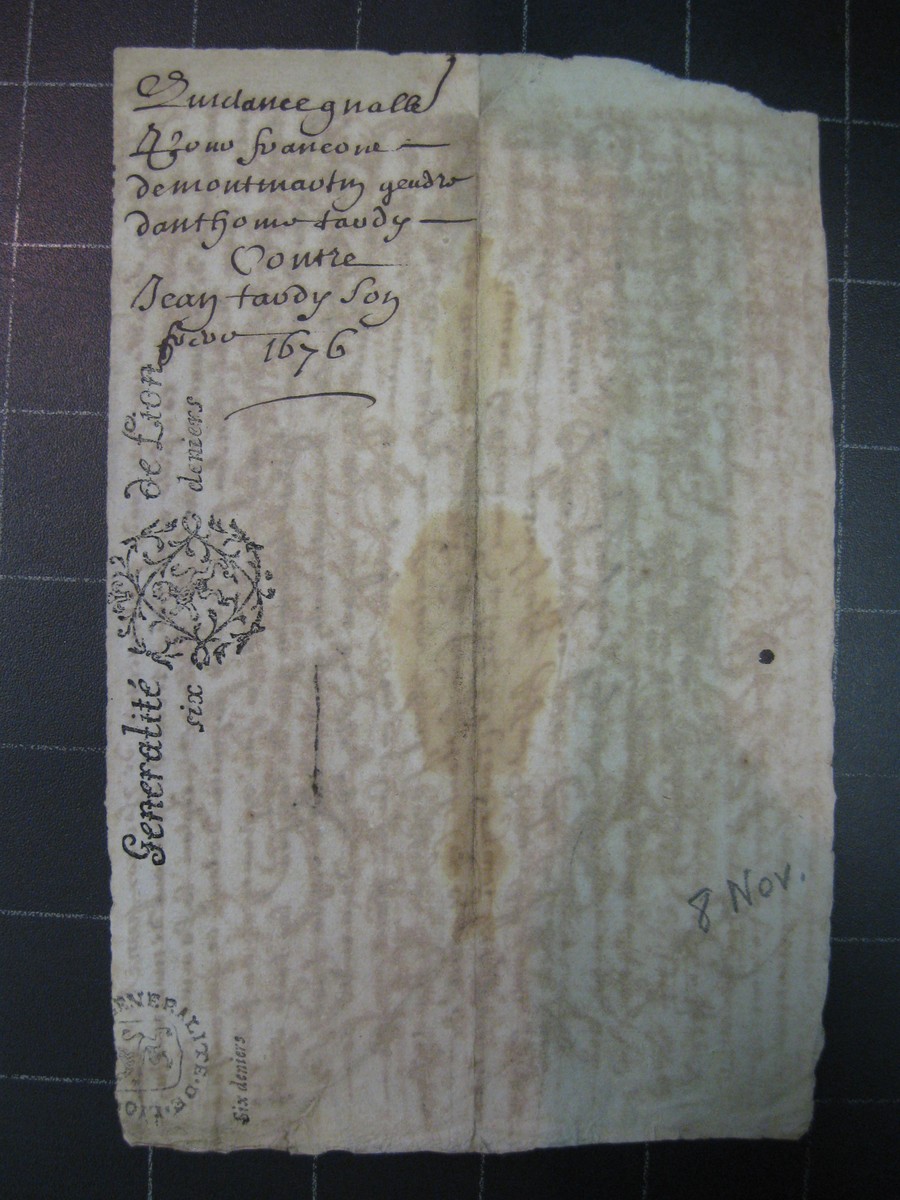 Quidance gnalle
pour francone —
demontmartin gendre
danthoine tardy —
Contre
Jean tardy son
frere 1676
Generalité de Lion
six deniers
GENERALITE·DE·LIO
Six deniers
8 Nov.